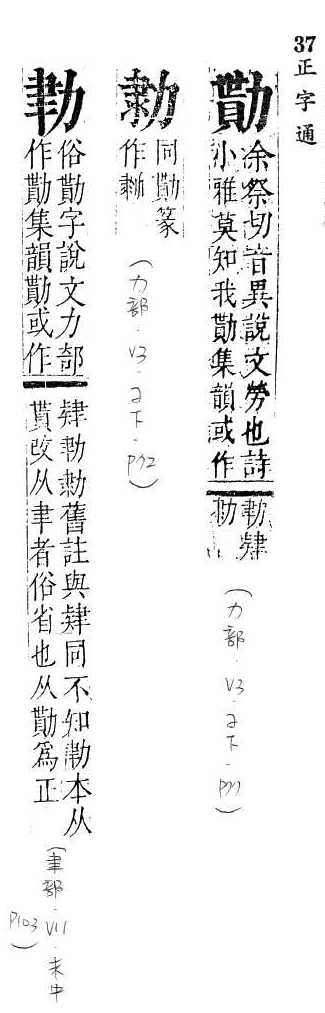 37
正字通
勩
余祭切音異說文勞也詩
小雅莫知我勩集韻或作
勚肄
(力部.V3.子下.P77)
同勩篆
作
(力部.V3.子下.P72)
俗勩字說文力部
作勩集韻勩或作
肄勚舊註與肄同不知勩本从
貰改从聿者俗省也从勩爲正
(聿部.V11.未中
P103)